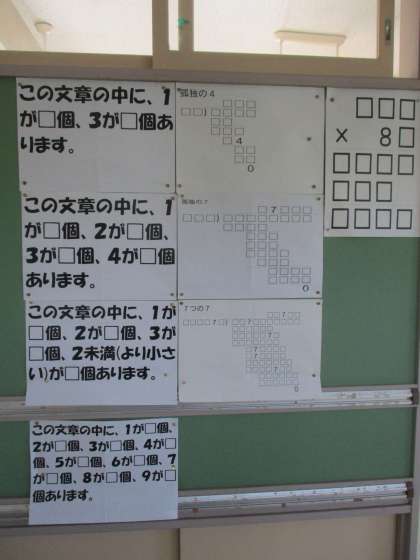 この文章の中に、1
が□個、3が□個あ
ります。
この文章の中に、1
が□個、2が□個、
3が□個、4が□個
あります。
この文章の中に、1が
□個、2が□個、3が
□個、2未満(より小さ
い)が□個あります。
この文章の中に、1が□個、
2が□個、3が□個、4が□
個、5が□個、6が□個、7
が□個、8が□個、9が□
個あります。
孤独の4
4
0
孤独の7
7
0
7つの7
7
7
7
7
7
7
7
0
□□□
× 8□
□□□□
□□□
□□□□